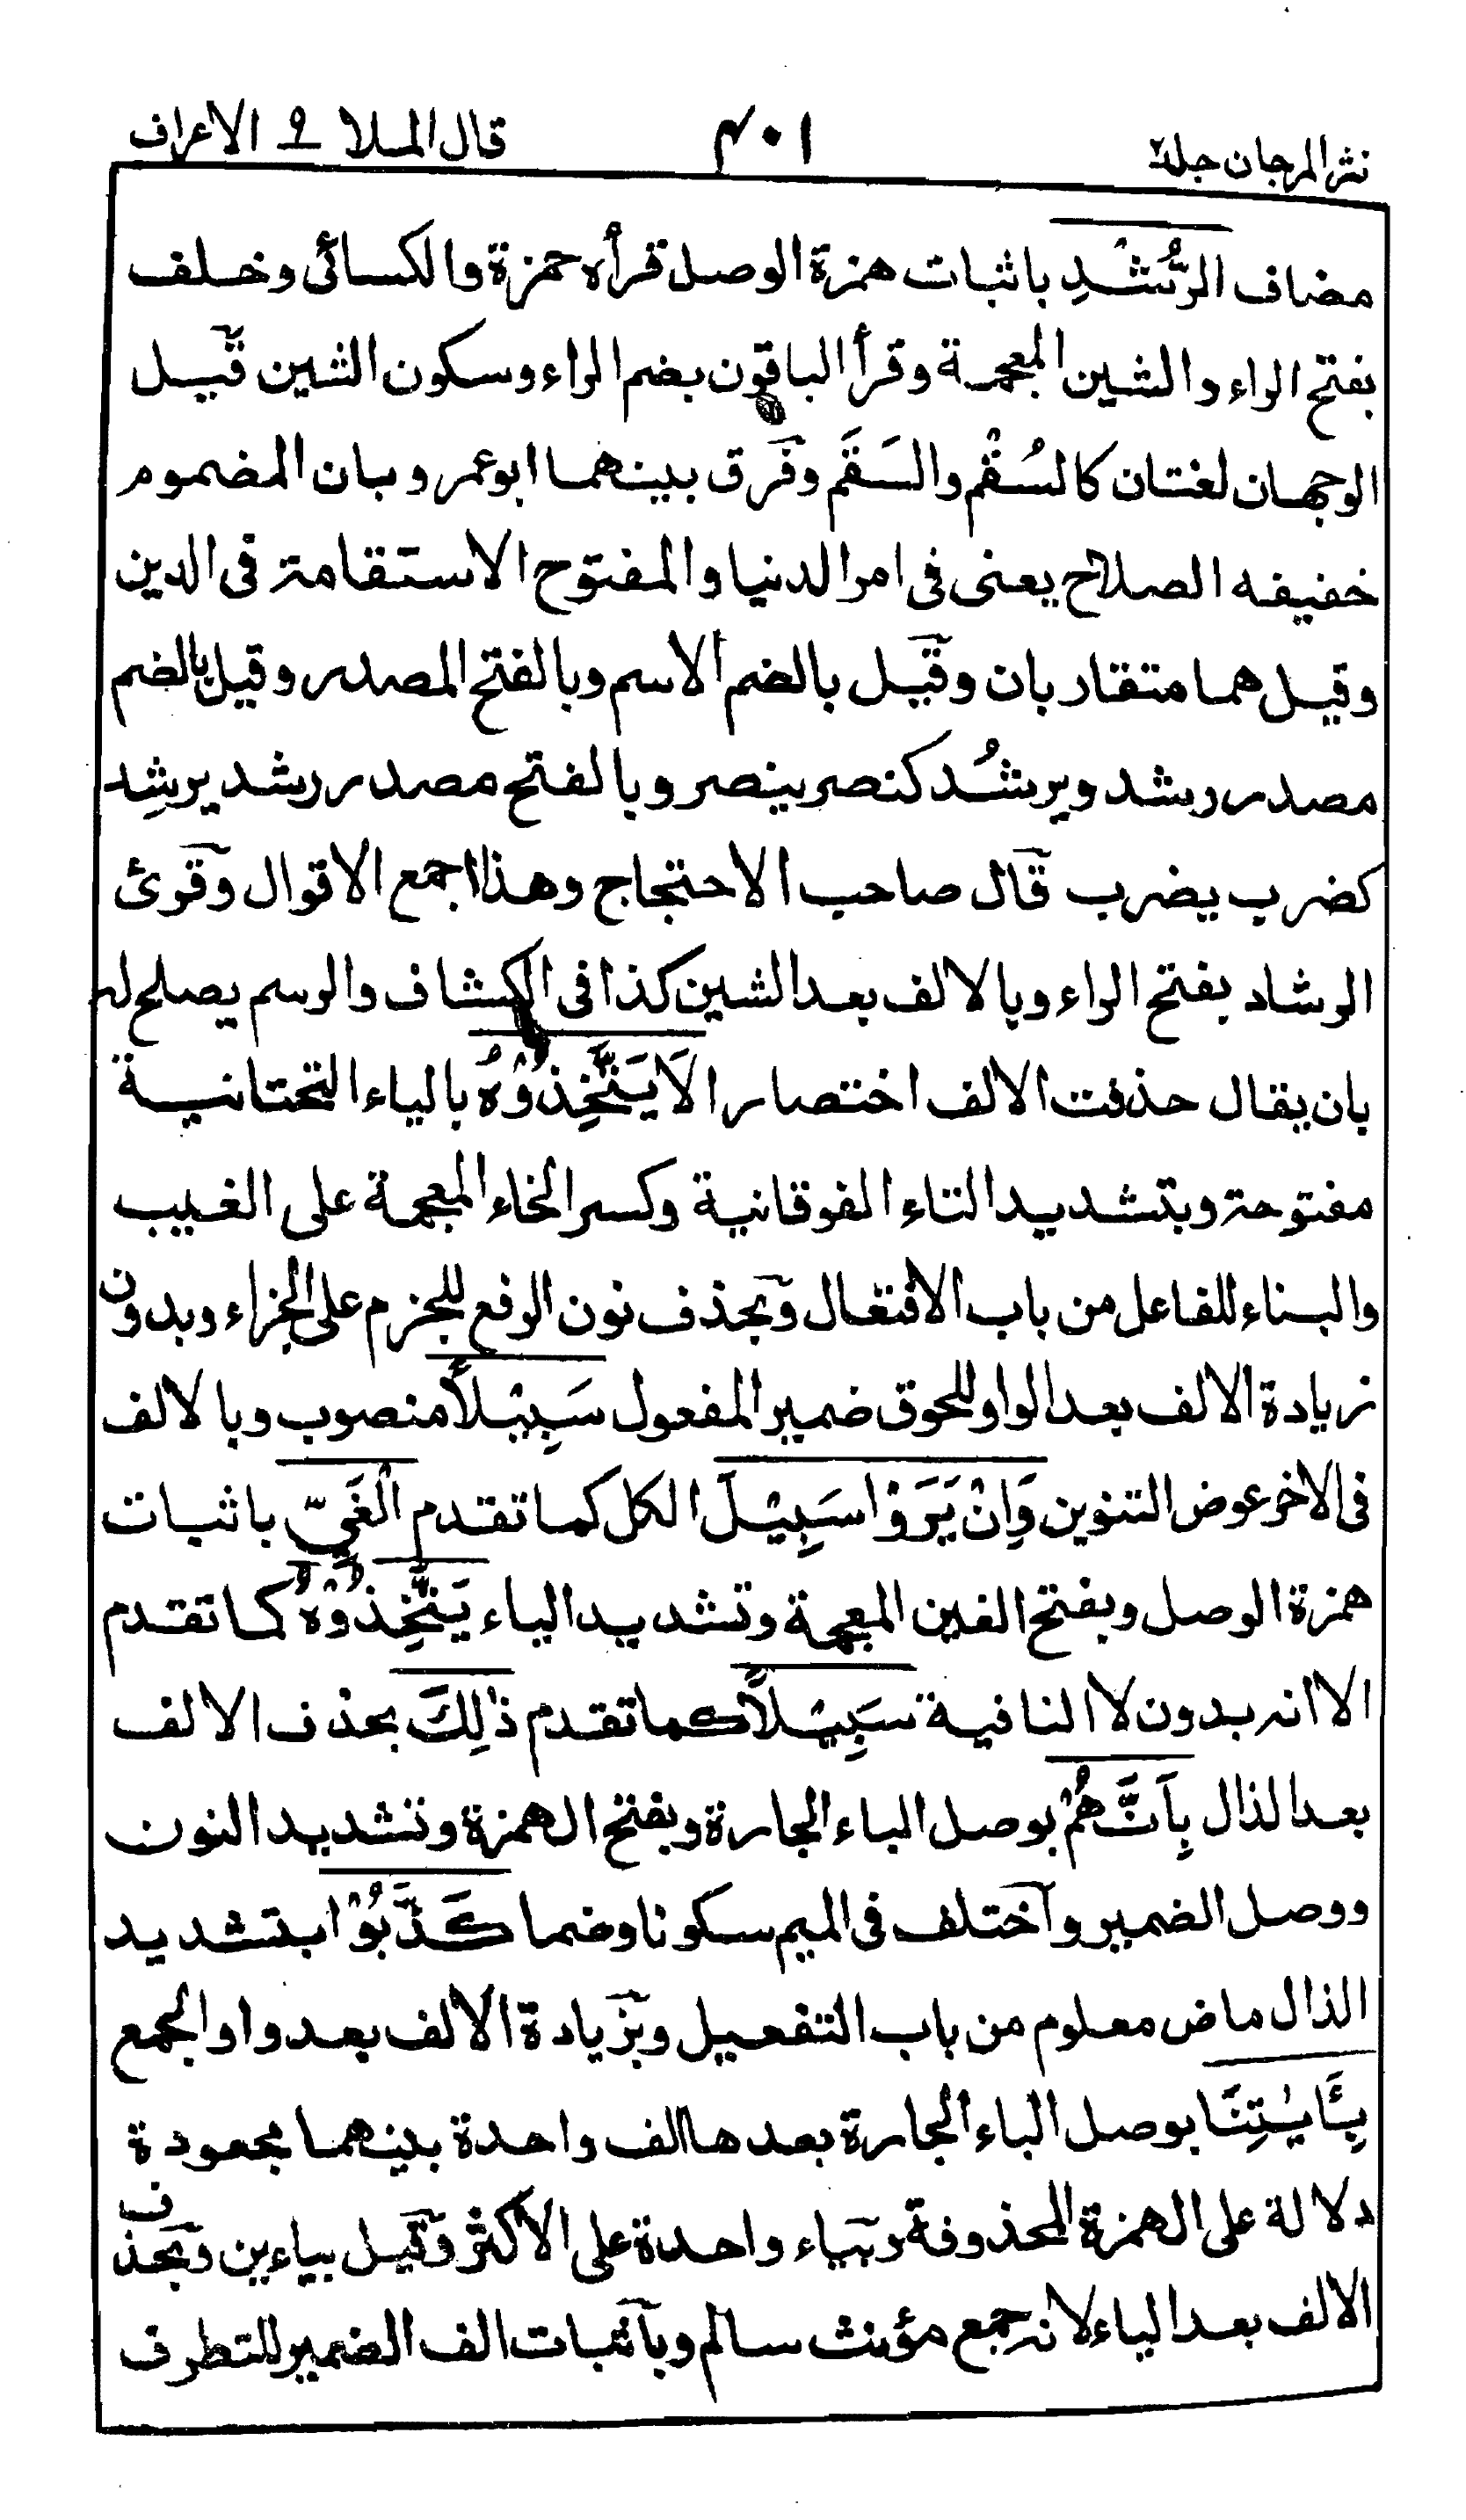 نثر المرجان جلد ٢ ٤٠١ قال الملا ٩ الاعراف
مضاف الرُّشْدِ باثبات همزة الوصل قرأه حمزة والكسائى وخلف
بفتح الراء والشين المعجمة وقرأ الباقون بضم الراء وسكون الشين قيل
الوجهان لغتان كالسُقْم والسَقَم وفَرق بينهما ابو عمرو بان المضموم
خفيفه الصلاح يعنى فى امر الدنيا والمفتوح الاستقامة فى الدين
وقيل هما متقاربان وقيل بالضم الاسم وبالفتح المصدر وقيل بالضم
مصدر رشد ويرشُد كنصر ينصر وبالفتح مصدر رشد يرشِد
كضرب يضرب قال صاحب الاحتجاج وهذا اجمع الاقوال وقرئ
الرشاد بفتح الراء وبالالف بعد الشين كذا فى الكشاف والرسم يصلح له
بان يقال حذفت الالف اختصارا لَا يَتَّخِذُوْهُ بالياء التحتانية
مفتوحة وبتشديد التاء الفوقانية وكسر الخاء المعجمة على الغيب
والبناء للفاعل من باب الافتعال وبحذف نون الرفع للجزم على الجزاء وبدون
زيادة الالف بعد الواو للحوق ضمير المفعول سَبِيْلًا منصوب وبالالف
فى الاخر عوض التنوين وَاِنْ يَرَوْا سَبِيْلَ الكل كما تقدم الْغَىِّ باثبات
همزة الوصل وبفتح الغين المعجمة وتشديد الياء يَتَّخِذُوْهُ كما تقدم
الا انه بدون لا النافية سَبِيْلًا كما تقدم ذٰلِكَ بحذف الالف
بعد الذال بِاَنَّهُمْ بوصل الباء الجارة وبفتح الهمزة وتشديد النون
ووصل الضمير واختلف فى الميم سكونا وضما كَذَّبُوْا بتشديد
الذال ماض معلوم من باب التفعيل وبزيادة الالف بعد واو الجمع
بِـَٔايٰتِنَا بوصل الباء الجارة بعدها الف واحدة بينهما مجعودة
دلالة على الهمزة المحذوفة وبياء واحدة على الاكثر وقيل بياءين وبحذف
الالف بعد الياء لانه جمع مؤنث سالم وباثبات الف الضمير للتطرف